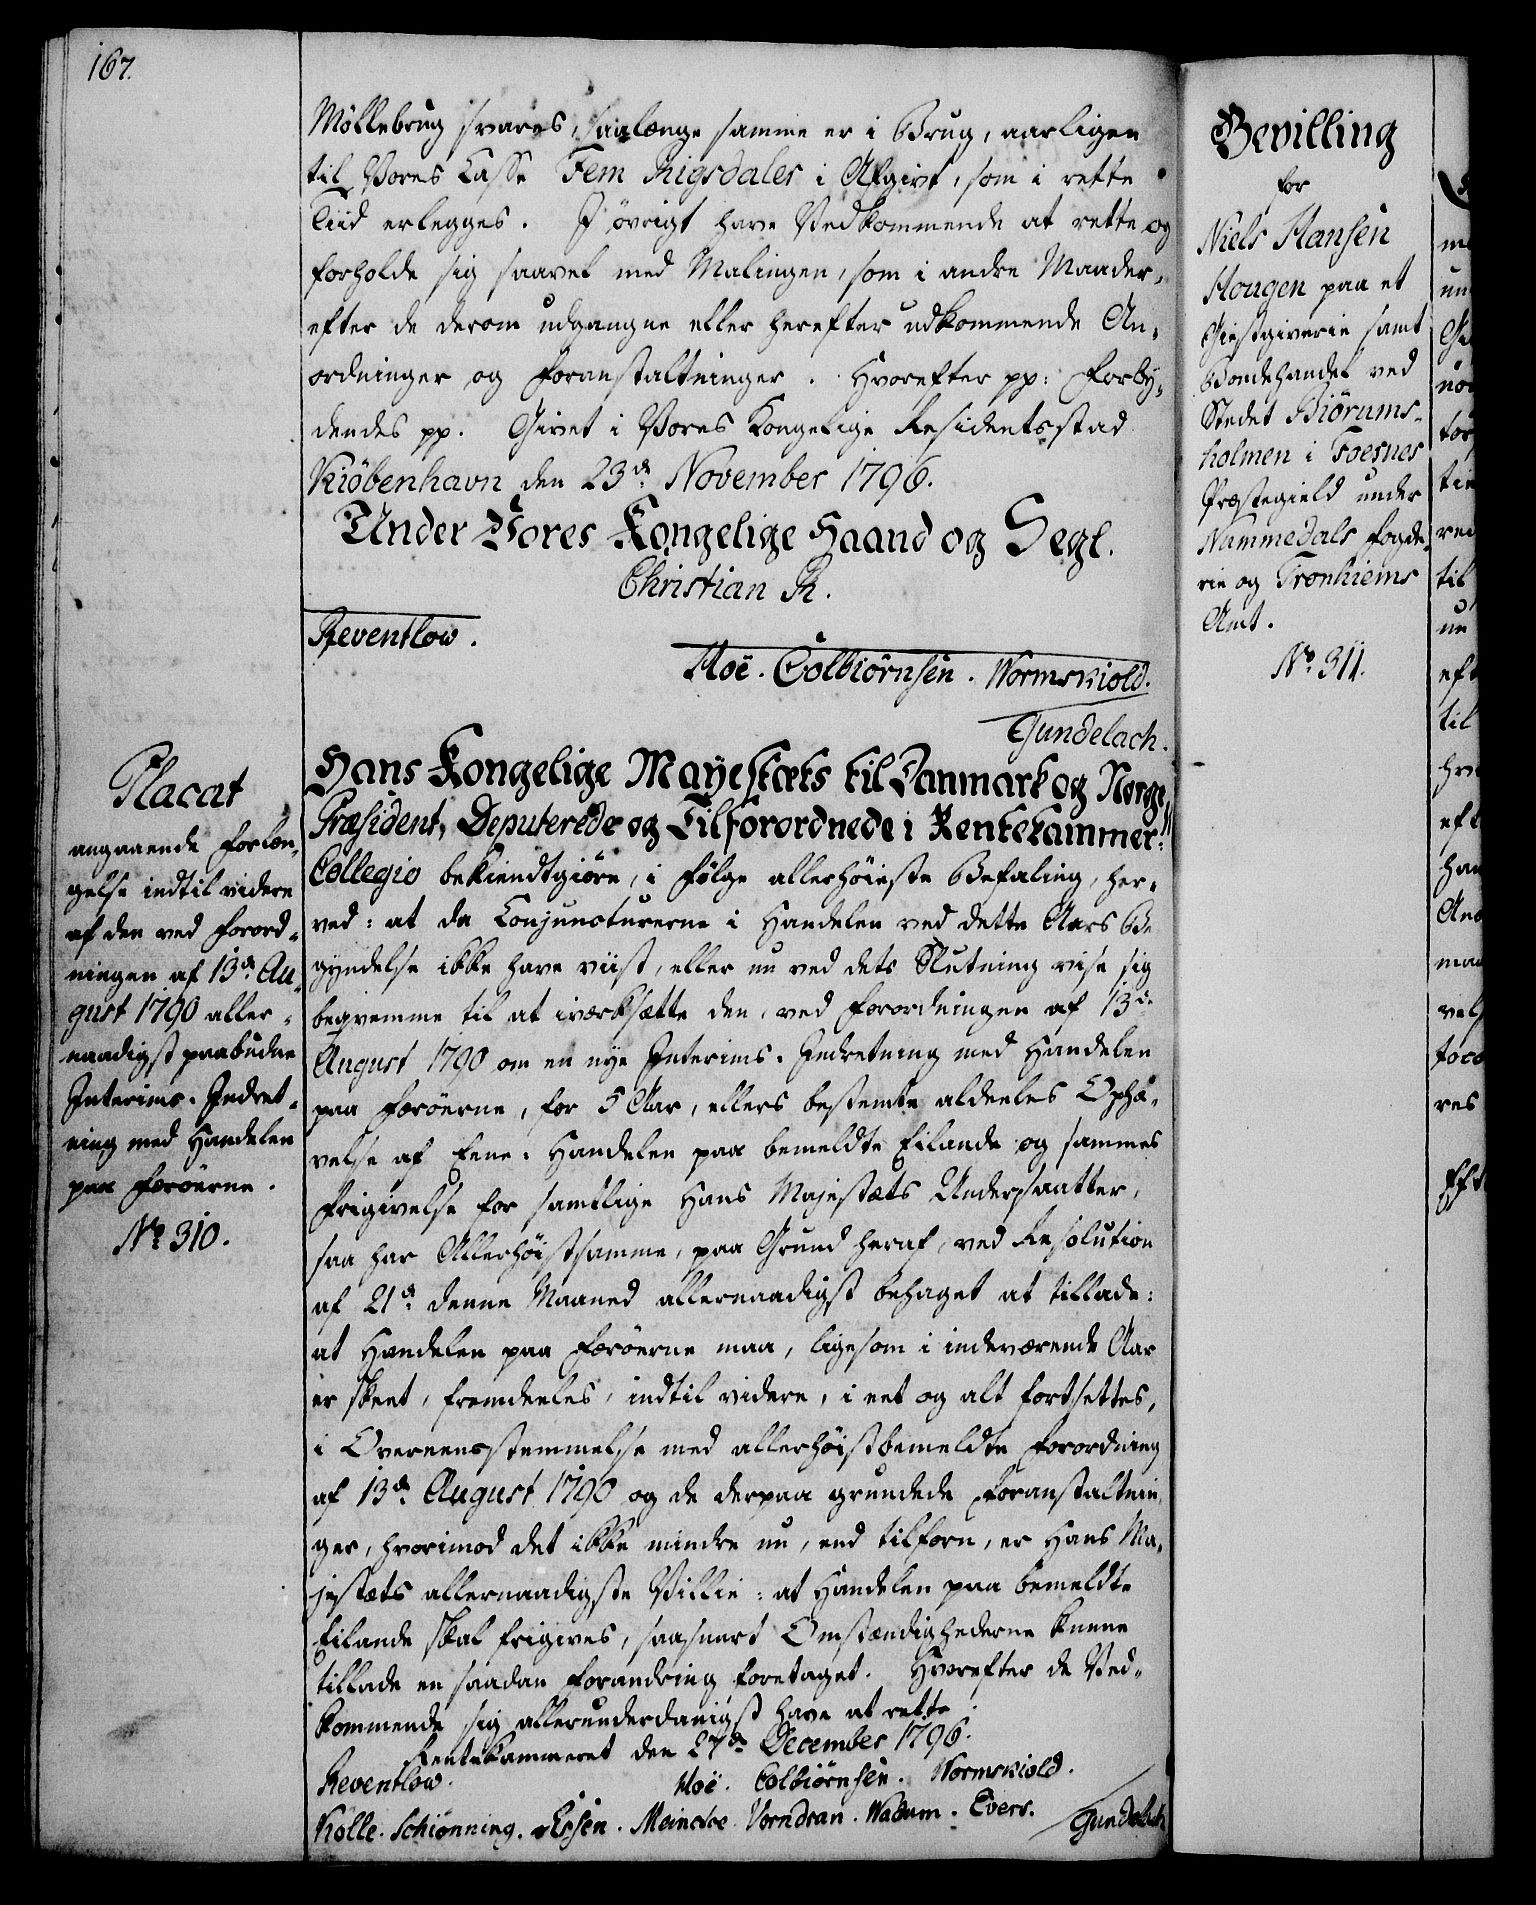 167.
Möllebrug svares, saalænge samme er i Brug, aarligen
til Vores Casse Fem Rigsdaler i Afgivt, som i rette
Tiid erlegges. I övrigt have Vedkommende at rette og
forholde sig saavel med Malingen, som i andre Maader,
efter de derom udgangne eller herefter udkommende An-
ordninger og Foranstaltninger. Hvorefter pp: Forby-
dendes pp. Givet i Vores Kongelige Residentsstad
Kiöbenhavn den 23de November 1796.
Under Vores Kongelige Haand og Segl.
Christian R.
Reventlow.
Hoë. Colbiörnsen. Wormskiold.
Gundelach.
Placat
angaaende Forlæn-
gelse indtil videre
af den ved Forord-
ningen af 13de Au-
gust 1790 aller-
naadigst paabudne
Interims-Indret-
ning med Handelen
paa Færöerne.
No 310.
Hans Kongelige Mayestæts til Danmark og Norge
Præsident, Deputerede og Tilforordnede i Rentekammer-
Collegio bekiendtgiöre, i Fölge allerhöieste Befaling, her-
ved: at da Conjuncturerne i Handelen ved dette Aars Be
gyndelse ikke have viist, eller nu ved dets Slutning vise sig
beqvemme til at iværksætte den, ved Forordningen af 13de
August 1790 om en nye Interims-Indretning med Handelen
paa Færöerne, for 5 Aar, ellers bestemte aldeeles Ophæ-
velse af Eene-Handelen paa bemeldte Eilande og sammes
Frigivelse for samtlige Hans Majestæts Undersaatter,
saa har Allerhöistsamme, paa Grund heraf, ved Resolution
af 21de denne Maaned allernaadigst behaget at tillade:
at Handelen paa Færöerne maa, ligesom i indeværende Aar
er skeet, fremdeeles, indtil videre, i eet og alt fortsettes,
i Overeensstemmelse med allerhöistbemeldte Forordning
af 13de August 1790 og de derpaa grundede Foranstaltnin
ger, hvorimod det ikke mindre nu, end tilforn, er Hans Ma-
jestæts allernaadigste Villie: at Handelen paa bemeldte
Eilande skal frigives, saasnart Omstændighederne kunne
tillade en saadan Forandring foretaget. Hvorefter de Ved-
kommende sig allerunderdanigst have at rette.
Rentekammeret den 27de December 1796.
Reventlow. Hoë. Colbiörnsen. Wormskiold.
Kölle. Schiönning. Essen. Meincke. Vorndran. Wadum. Evers. Gundelach
Bevilling
for
Niels Hansen
Hougen paa et
Giestgiverie samt
Bondehandel ved
Stedet Biörums-
holmen i Foesnes
Præstegield under
Nummedals Fogde-
rie og Tronhiems
Amt.
No 311.